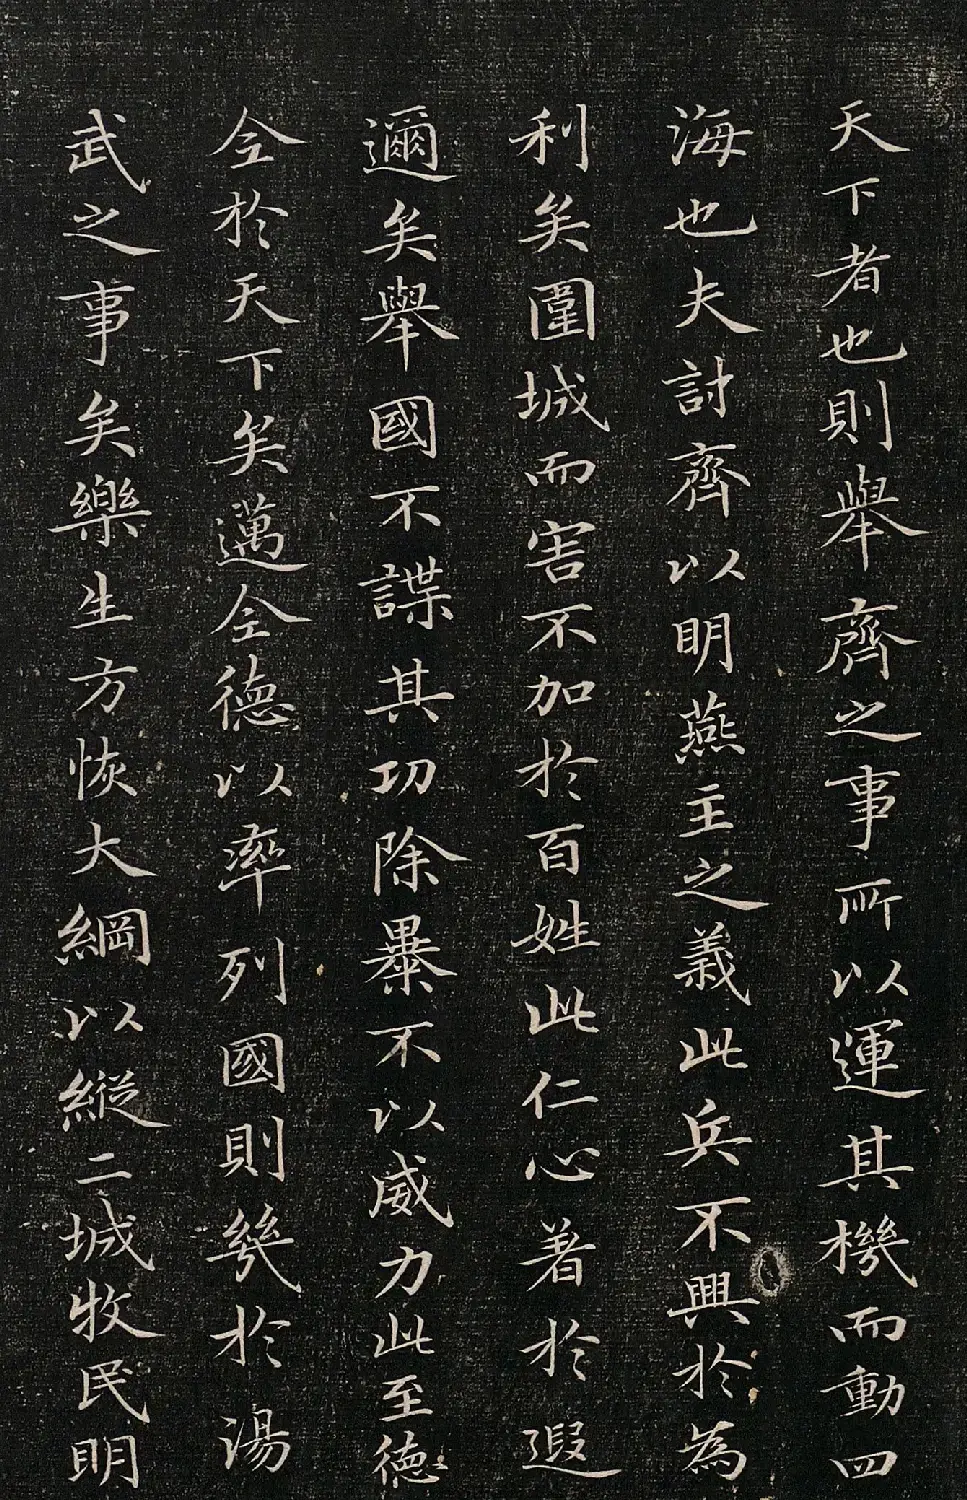 天下者也則舉齊之事所以運其機而動四
海也夫討齊以明燕主之義此兵不興於為
利矣圍城而害不加於百姓此仁心著於遐
邇矣舉國不謀其功除暴不以威力此至德
全於天下矣邁全德以率列國則幾於湯
武之事矣樂生方恢大綱以縱二城牧民明